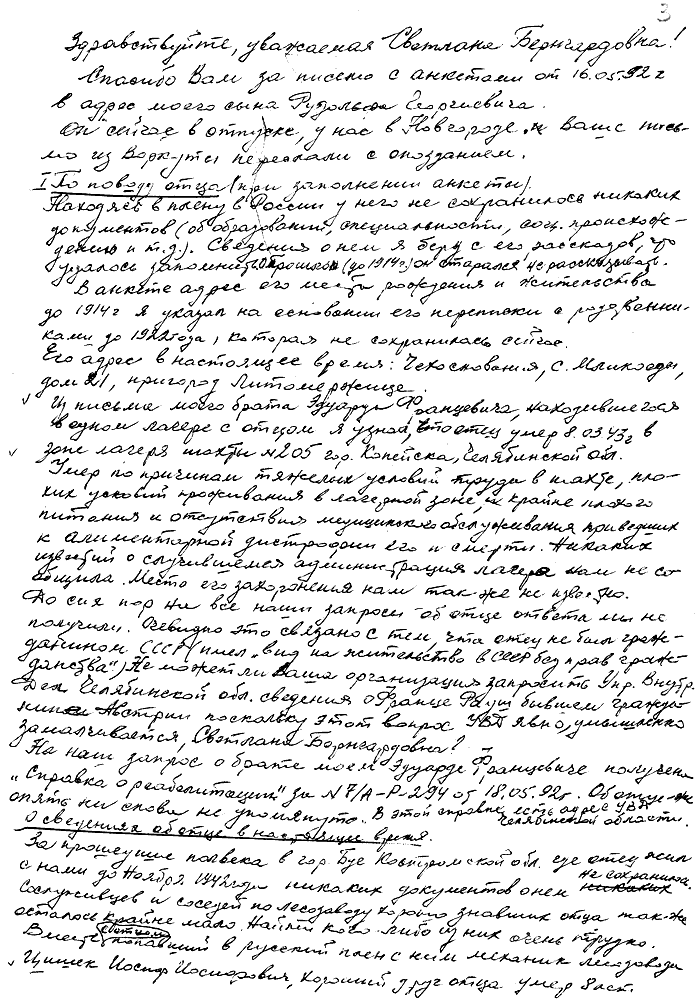 3
Здравствуйте, уважаемая Светлана Бернгардовна!
Спасибо Вам за письмо с анкетами от 16.05.92 г
в адрес моего сына Рудольфа Георгиевича.
Он сейчас в отпуске, у нас в Новгороде и Ваше пись-
мо из Воркуты переслали с опозданием.
I По поводу отца (при заполнении анкеты).
Находясь в плену в России у него не сохранилось никаких
документов (об образовании, специальности, соц. происхож-
дению и т.д.). Сведения о нем я беру с его рассказов, что
удалось запомнить. О прошлом (до 1914 г) он старался не рассказывать.
В анкете адрес его места рождения и жительства
до 1914 г я указал на основании его переписки с родственни-
ками до 1922 года, которая не сохранилась сейчас.
Его адрес в настоящее время: Чехословакия, с. Мликоеды,
дом 21, пригород Литомержице.
Из письма моего брата Эдуарда Францевича, находившегося
в одном лагере с отцом я узнал, что отец умер 8.03.43 г в
зоне лагеря шахты № 205 гор. Копейска, Челябинской обл.
Умер по причинам тяжелых условий труда в шахте, пло-
хих условий проживания в лагерной зоне, и крайне плохого
питания и отсутствия медицинского обслуживания приведших
к алиментарной дистрофии его и смерти. Никаких
известий о случившемся администрация лагеря нам не со-
общила. Место его захоронения нам так же не известно.
До сих пор на все наши запросы об отце ответа мы не
получили. Очевидно это связано с тем, что отец не был граж-
данином СССР (имел „вид на жительство в СССР без прав граж-
данства") Не может ли Ваша организация запросить Упр. Внутр.
Дел Челябинской обл. сведения о Франце Рауш бывшем гражда-
нине Австрии поскольку этот вопрос УВД явно, умышленно
замалчивается, Светлана Бернгардовна?
На наш запрос о брате моем Эдуарде Францевиче получена
„Справка о реабилитации" за № 7/А-Р-294 от 18.05.92 г. Об отце-же
опять ни слова не упомянуто. В этой справке есть адрес УВД
Челябинской области.
О сведениях об отце в настоящее время.
За прошедшие полвека в гор. Буе Костромской обл. где отец жил
с нами до Ноября 1942 года никаких документов о нем не сохранилось.
Сослуживцев и соседей по лесозаводу хорошо знавших отца так-же
осталось крайне мало. Найти кого-либо из них очень трудно.
Вместе попавший в русский плен с ним механик лесозавода
Цишек Иосиф Иосифович, хороший друг отца умер 8 лет